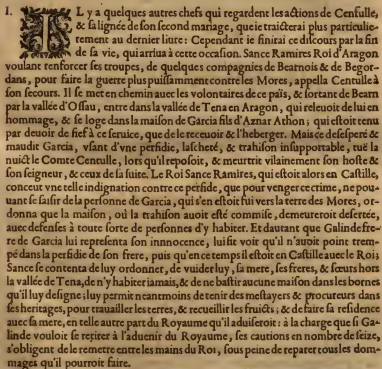 I. IL y a quelques autres chefs qui regardent les actions de Cẽtulle,
& sa lignée de son second mariage, que ie traicterai plus particulie-
rement au dernier liure: Cependant ie finirai ce discours par la fin
de sa vie, qui arriua à cette occasion. Sance Ramires Roi d'Aragon
voulant renforcer ses troupes, de quelques compagnies de Bearnois & de Begor-
dans, pour faire la guerre plus puissamment contre les Mores, appella Centulle à
son secours. Il se met en chemin auec les volontaires de ce païs, & sortant de Bearn
par la vallée d'Ossau, entre dans la vallée de Tena en Aragon, qui releuoit de lui en
hommage, & se loge dans la maison de Garcia fils d'Aznar Athon; qui estoit tenu
par deuoir de fief à ce seruice, que de le receuoir & l'heberger. Mais ce desesperé &
maudit Garcia, vsant d'vne perfidie, lascheté, & trahison insupportable, tuë la
nuict le Comte Centulle, lors qu'il reposoit, & meurtrit vilainement son hoste &
son seigneur, & ceux de sa suite. Le Roi Sance Ramires, qui estoit alors en Castille,
conceut vne telle indignation contre ce perfide, que pour venger ce crime, ne pou-
uant se saisir de la personne de Garcia, qui s'en estoit fui vers la terre des Mores, or-
donna que la maison, où la trahison auoit esté commise, demeureroit desertée,
auec defenses à toute sorte de personnes d'y habiter. Et dautant que Galinde fre-
re de Garcia lui representa son innnocence, lui fit voir qu'il n'auoit point trem-
pé dans la perfidie de son frere, puis qu'en ce temps il estoit en Castille auec le Roi;
Sance se contenta de luy ordonner, de vuider luy, sa mere, ses freres, & sœurs hors
la vallée de Tena, de n'y habiter iamais, & de ne bastir aucune maison dans les bornes
qu'il luy designe; luy permit neantmoins de tenir des mestayers & procureurs dans
ses heritages, pour trauailler les terres, & recueillir les fruicts; & de faire sa residence
auec sa mere, en telle autre part du Royaume qu'il aduiseroit: à la charge que si Ga-
linde vouloit se retirer à l'aduenir du Royaume, ses cautions en nombre de seize,
s'obligent de le remettre entre les mains du Roi, sous peine de reparer tous les dom-
mages qu'il pourroit faire.